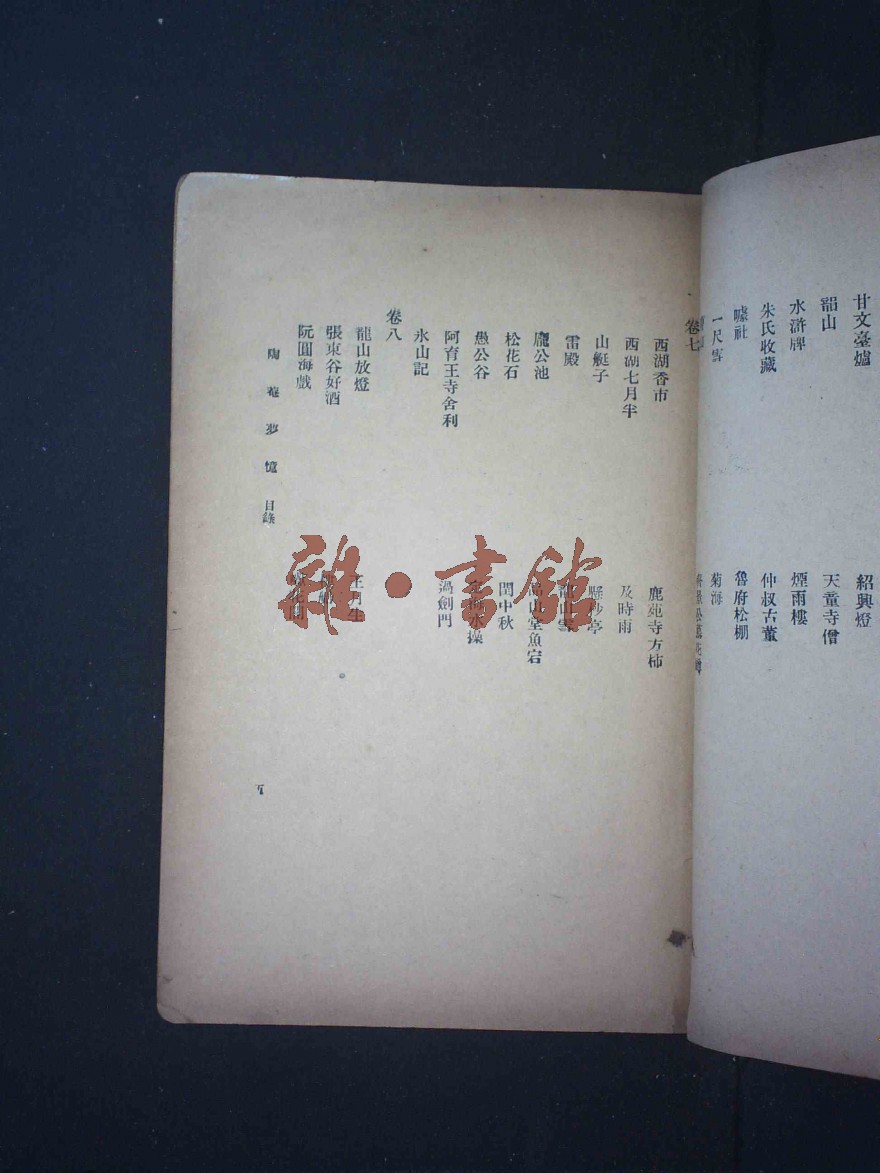 甘文臺爐
紹興燈
韶山
天童寺僧
水滸牌
煙雨樓
朱氏收藏
仲叔古董
噱社
魯府松棚
一尺雪
菊海
卷七
西湖香市
鹿苑寺方柿
西湖七月半
及時雨
山艇子
懸杪亭
雷殿
龐公池
品山堂魚宕
松花石
閏中秋
愚公谷
阿育王寺舍利
過劍門
氷山記
卷八
龍山放燈
王月生
張東谷好酒
阮圓海戲
陶菴夢憶 目錄
五
雜·書館